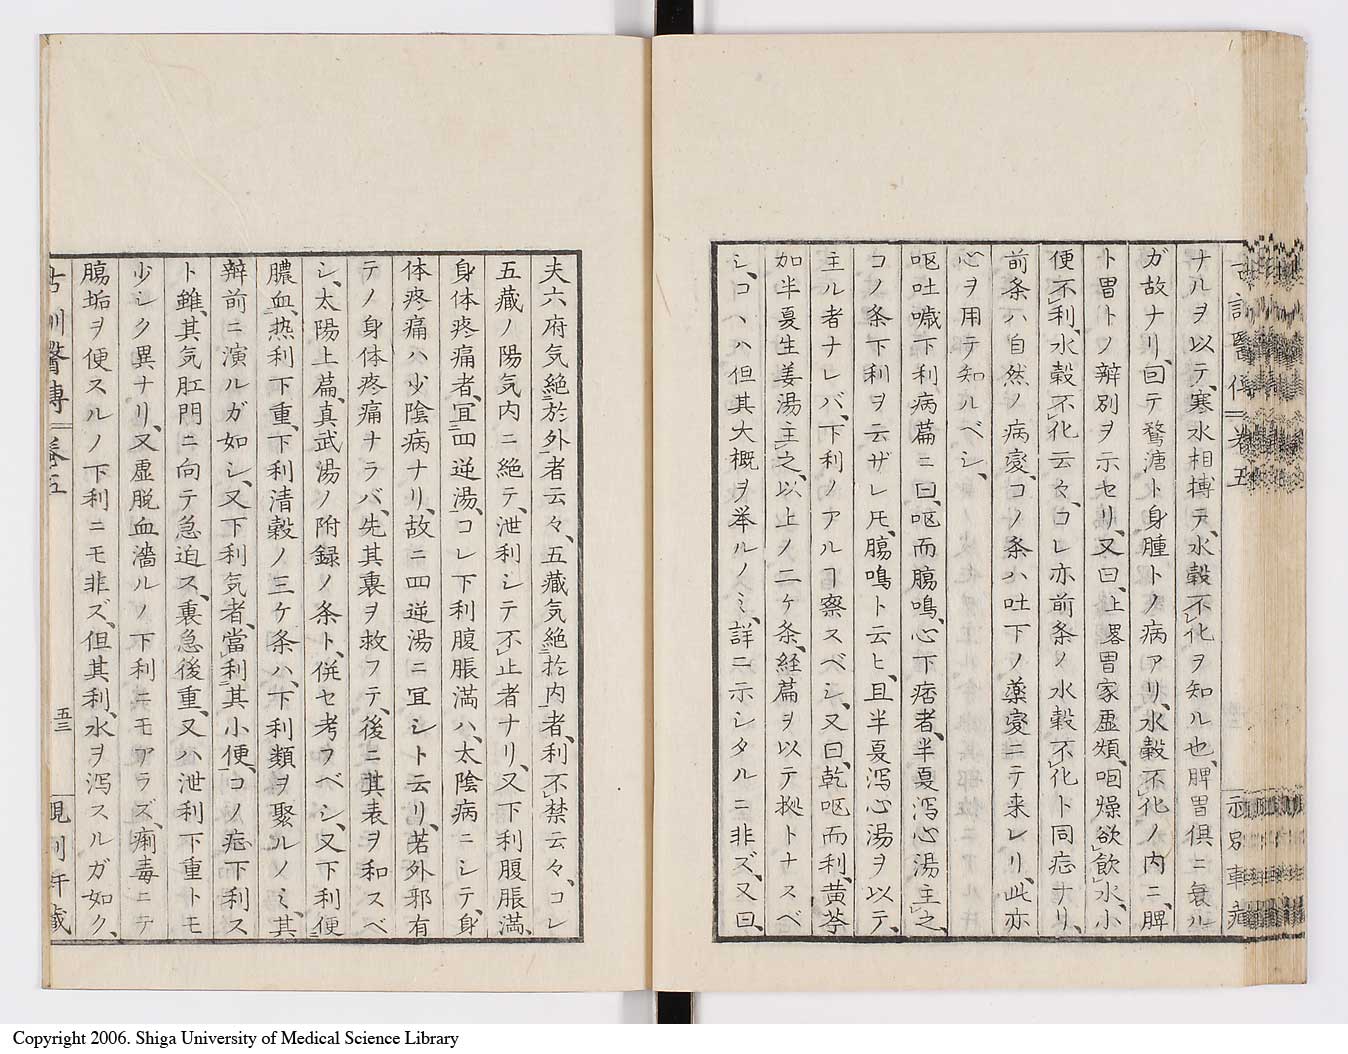 ナルヲ以テ、寒水相搏テ、水穀不化ヲ知ル也、脾胃俱ニ衰ル
ガ故ナリ、曰テ鶩溏ト身腫トノ病アリ、水穀不化ノ内ニ、脾
ト胃トノ辨別ヲ示セリ、又曰、上畧胃家虚煩、咽燥欲飲水、小
便不利、水穀不化云々、コレ亦前条ノ水穀不化ト同症ナリ、
前条ハ自然ノ病変、コノ条ハ吐下ノ薬変ニテ来レリ、此亦
心ヲ用テ知ルベシ、
嘔吐噦下利病篇ニ曰、嘔而腸鳴、心下痞者、半夏瀉心湯主之、
コノ条下利ヲ云ザレ𪜈、腸鳴ト云ヒ、且半夏瀉心湯ヲ以テ、
主ル者ナレバ、下利ノアルヿ察スベシ、又曰、乾嘔而利、黄芩
加半夏生姜湯主之、以上ノ二ケ条、経篇ヲ以テ拠トナスベ
シ、コヽハ但其大概ヲ挙ルノミ、詳ニ示シタルニ非ズ、又曰、
古訓醫傳 巻五
夫六府気絶於外者云々、五蔵気絶於内者、利不禁云々、コレ
五蔵ノ陽気内ニ絶テ、泄利シテ不止者ナリ、又下利腹脹満、
身体疼痛者、冝四逆湯、コレ下利腹脹満ハ、太陰病ニシテ、身
体疼痛ハ少陰病ナリ、故ニ四逆湯ニ冝シト云リ、若外邪有
テノ身体疼痛ナラバ、先其裏ヲ救フテ、後ニ其表ヲ和スベ
シ、太陽上篇、真武湯ノ附録ノ条ト、併セ考フベシ、又下利便
膿血、热利下重、下利清穀ノ三ケ条ハ、下利類ヲ聚ルノミ、其
辨前ニ演ルガ如シ、又下利気者、當利其小便、コノ症下利ス
ト雖、其気肛門ニ向テ急迫ス、裏急後重、又ハ泄利下重トモ
少シク異ナリ、又虚脱血濇ルノ下利ニモアラズ、痢毒ニテ
腸垢ヲ便スルノ下利ニモ非ズ、但其利、水ヲ瀉スルガ如ク、
古訓醫傳 巻五
五三
Copyright 2006. Shiga University of Medical Science Library